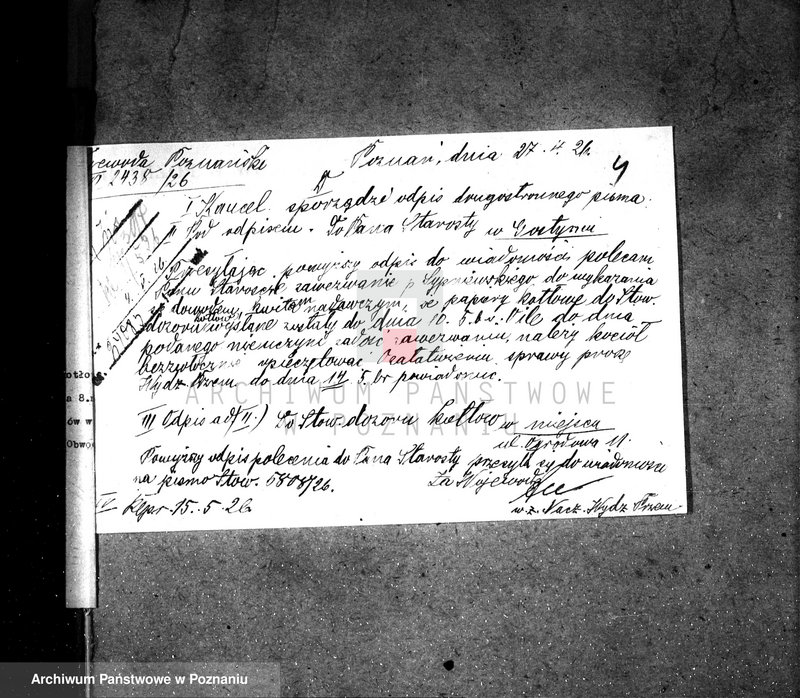 Poznański Poznań, dnia 27.4.26.
2438/26 4
I Kancel. sporządzi odpis drugostronnego pisma.
II Pod odpisem. Do Pana Starosty w Gostyniu
Przesyłając powyższy odpis do wiadomości polecam
Panu Staroście zawezwanie p. Sypniewskiego do wykazania
dowodem, kwitem nadawczym, że papiery kotłowe do Stow.
dozoru kotłów wysłane zostały do dnia 10.5.b.r. O ile do dnia
podanego nieuczyni zadość zawezwaniu, należy kocioł
bezzwłocznie opieczętować. O załatwieniu sprawy proszę
Wydz. Przem. do dnia 14.5. br powiadomić.
III Odpis ad (II.) Do Stow. dozoru kotłów w miejscu
ul. Ogrodowa 11.
Powyższy odpis polecenia do Pana Starosty przesyła się do wiadomości
na pismo Stow. 5808/26.
Za Wojewodę
IV 15.5.26
w.z. Nacz. Wydz. Przem.
a 8.
ów w
Obwo
ARCHIWUM PAŃSTWOWE
W POZNANIU
Archiwum Państwowe w Poznaniu